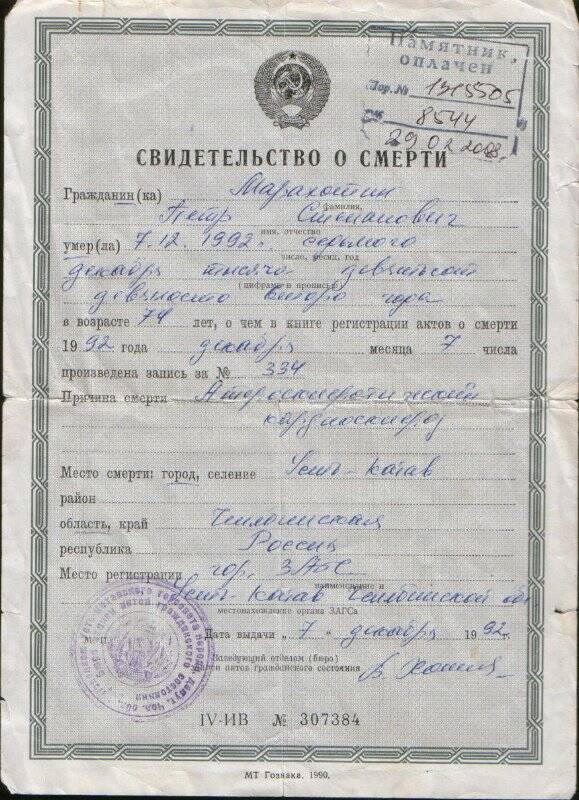 Памятник,
оплачен
Пор. № 1315505
8544
29 02 2008
СВИДЕТЕЛЬСТВО О СМЕРТИ
Гражданин(ка) Марахотин
фамилия,
Петр Степанович
имя, отчество
умер(ла) 7.12.1992. седьмого
число, месяц, год
декабря тысяча девятьсот
(цифрами и прописью)
девяносто второго года
в возрасте 74 лет, о чем в книге регистрации актов о смерти
1992 года декабря месяца 7 числа
произведена запись за № 334
Причина смерти Атеросклеротический
кардиосклероз
Место смерти: город, селение Усть-Катав
район
область, край Челябинская
республика Россия
Место регистрации гор. ЗАГС
наименование и
Усть-Катав Челябинской обл
местонахождение органа ЗАГСа
Дата выдачи „ 7 " декабря 1992 г.
Заведующий отделом (бюро)
записи актов гражданского состояния
IV-ИВ № 307384
МТ Гознака. 1990.